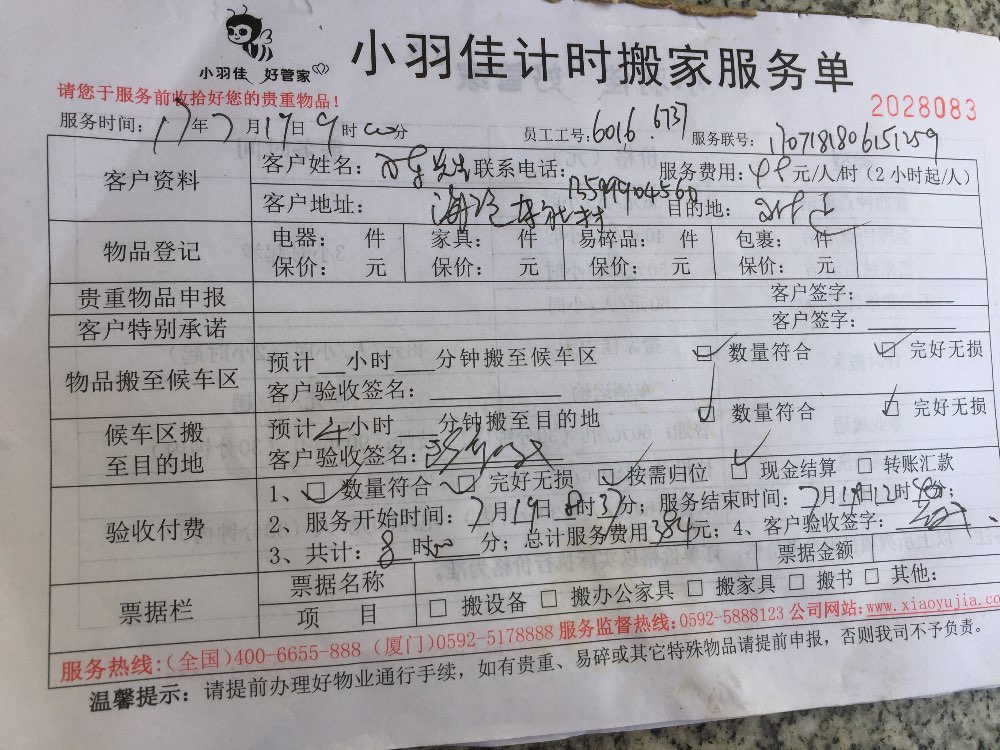 小羽佳 好管家
小羽佳计时搬家服务单
请您于服务前收拾好您的贵重物品!
2028083
服务时间: 17年7月19日9时00分 员工工号: 6016.6737 服务联号: 1707181806151259
客户资料
客户姓名: 先生 联系电话: 13599904560 服务费用: 48元/人/时 (2小时起/人)
客户地址: 海沧 村 目的地:
物品登记
电器: 件 家具: 件 易碎品: 件 包裹: 件
保价: 元 保价: 元 保价: 元 保价: 元
贵重物品申报 客户签字:
客户特别承诺 客户签字:
物品搬至候车区
预计__小时___分钟搬至候车区 数量符合 完好无损
客户验收签名:
候车区搬至目的地
预计4小时 分钟搬至目的地 数量符合 完好无损
客户验收签名:
验收付费
1、数量符合 完好无损 按需归位 现金结算 转账汇款
2、服务开始时间: 7月19日8时37分; 服务结束时间: 7月19日12时40分;
3、共计: 8时00分; 总计服务费用384元; 4、客户验收签字:
票据栏
票据名称 票据金额
项 目 搬设备 搬办公家具 搬家具 搬书 其他:
服务热线:(全国)400-6655-888 (厦门)0592-5178888 服务监督热线:0592-5888123 公司网站:www.xiaoyujia.co
温馨提示: 请提前办理好物业通行手续, 如有贵重、易碎或其它特殊物品请提前申报, 否则我司不予负责。